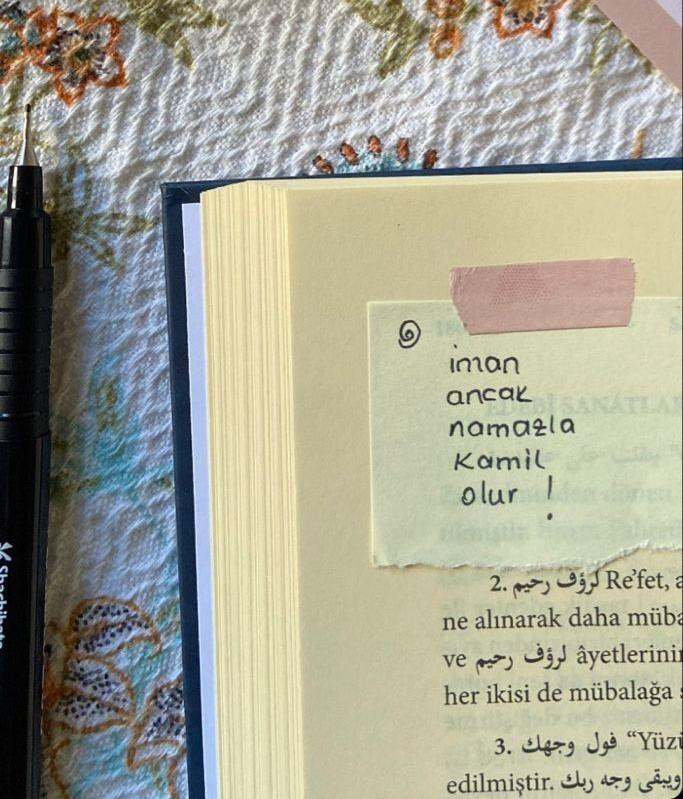 iman
ancak
namazla
Kamil
olur !
EDEBİ SANATLAR
2. لرؤف رحيم Re'fet, a
ne alınarak daha müba
ve لرؤف رحيم âyetlerinin
her ikisi de mübalağa s
3. فول وجهك “Yüzü
edilmiştir. ويبقى وجه ربك
Shachihata